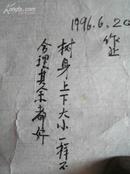 1996.6.20
作业
树身上下大小一样不
合理其余都好